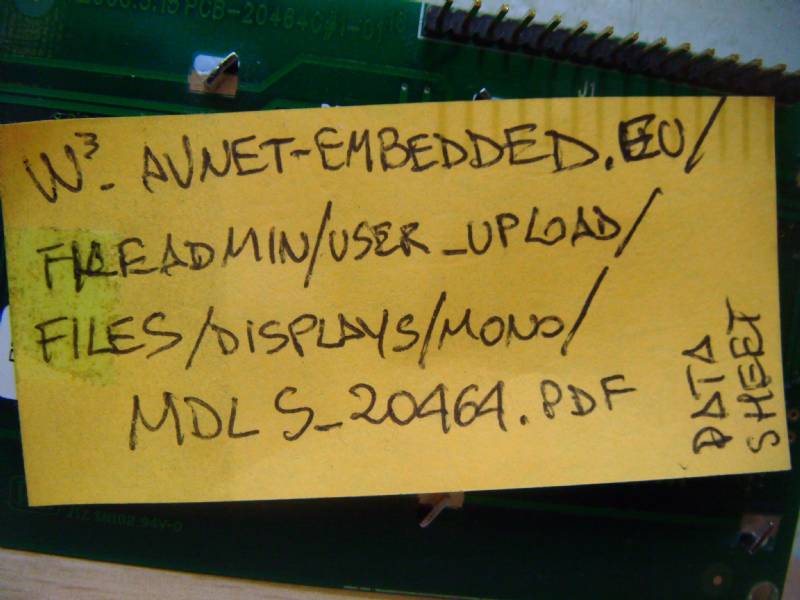 PCB-20464
J1
W³. AVNET-EMBEDDED.EU/
FILEADMIN/USER_UPLOAD/
FILES/DISPLAYS/MONO/
MDLS_20464.PDF
DATA
SHEET
94V-0